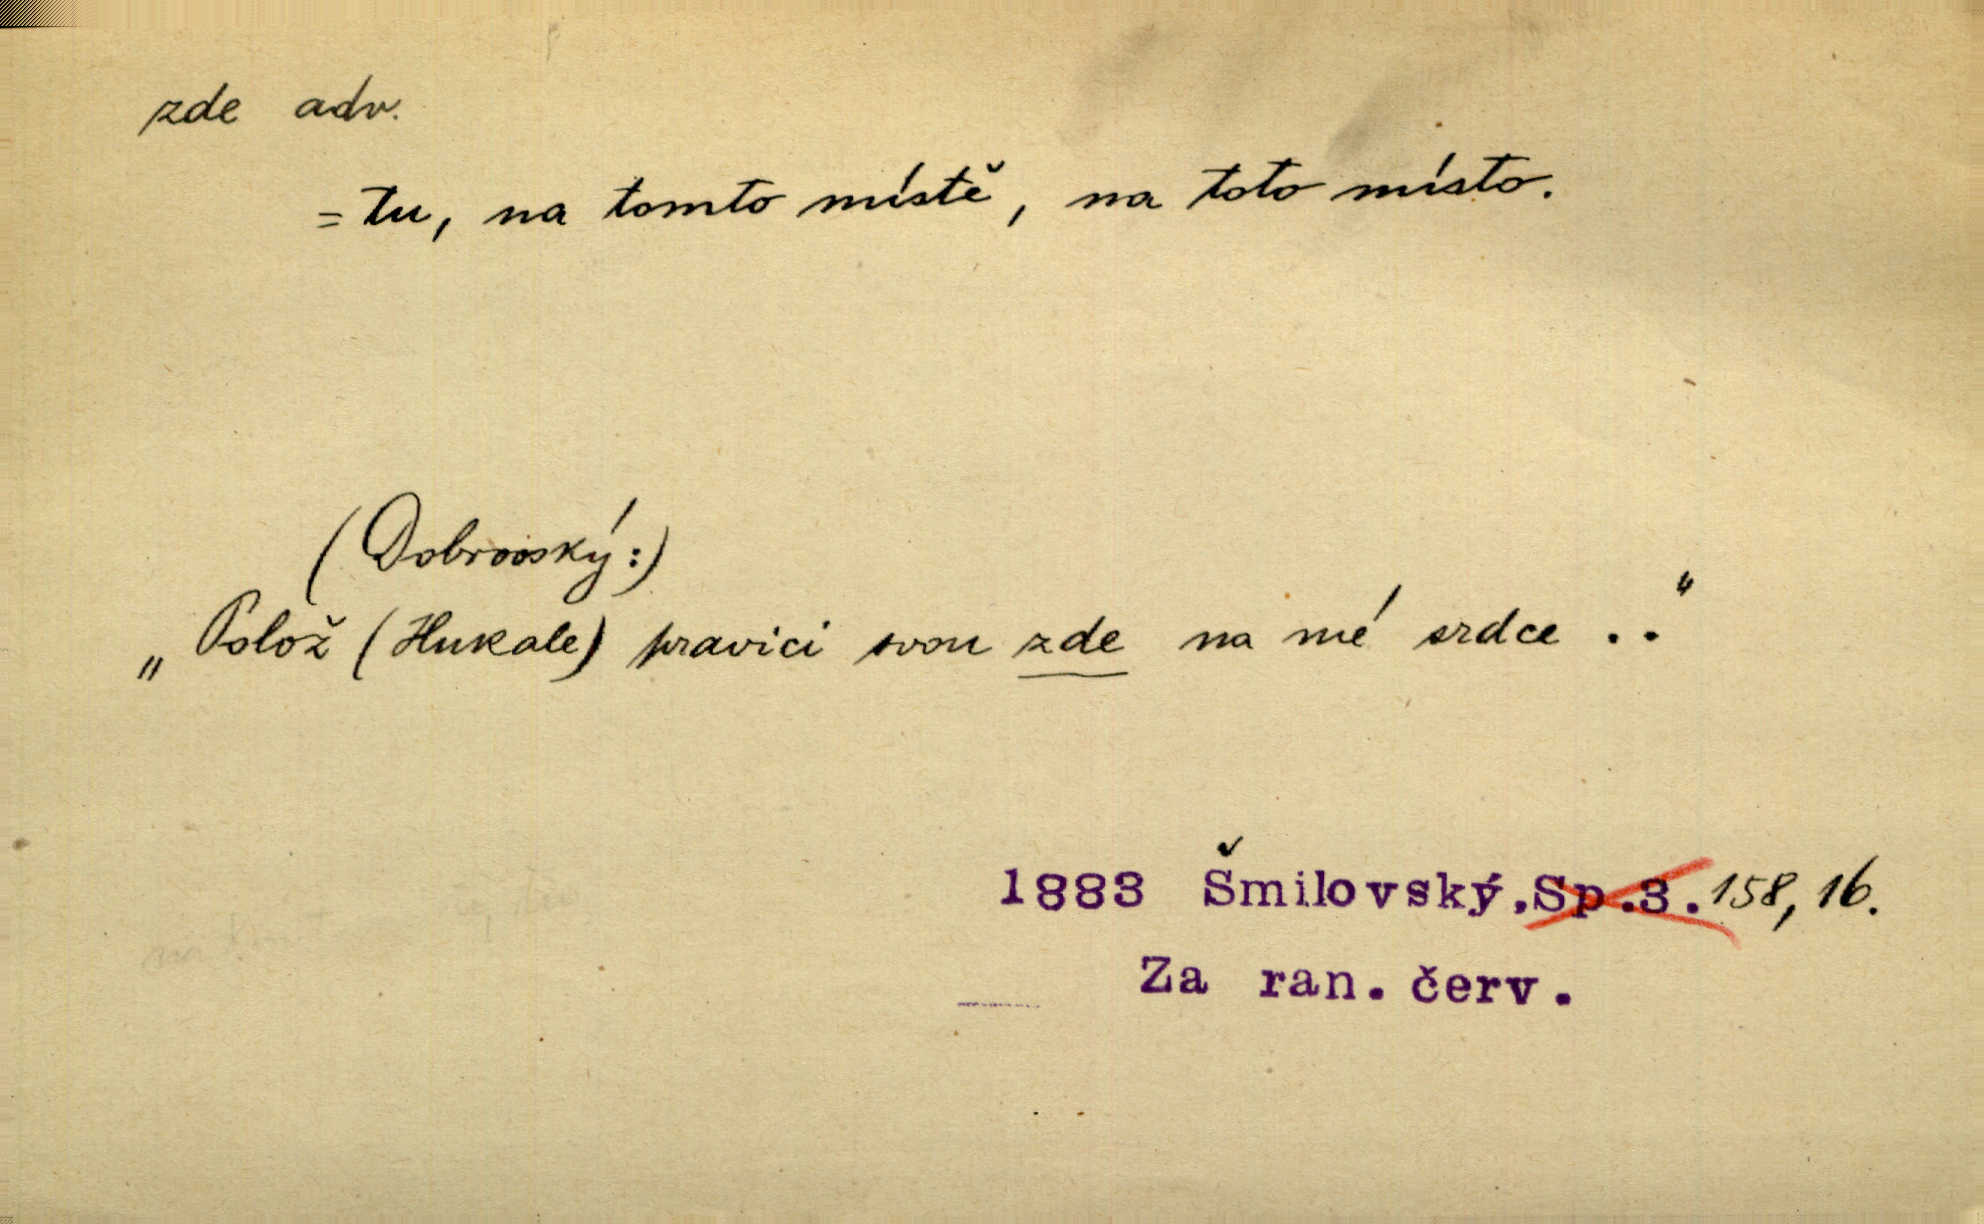 zde adv.
= tu, na tomto místě, na toto místo.
(Dobrovský:)
„Polož (Hukale) pravici svou zde na mé srdce . .“
1883 Šmilovský, Sp.3. 158, 16.
Za ran. červ.